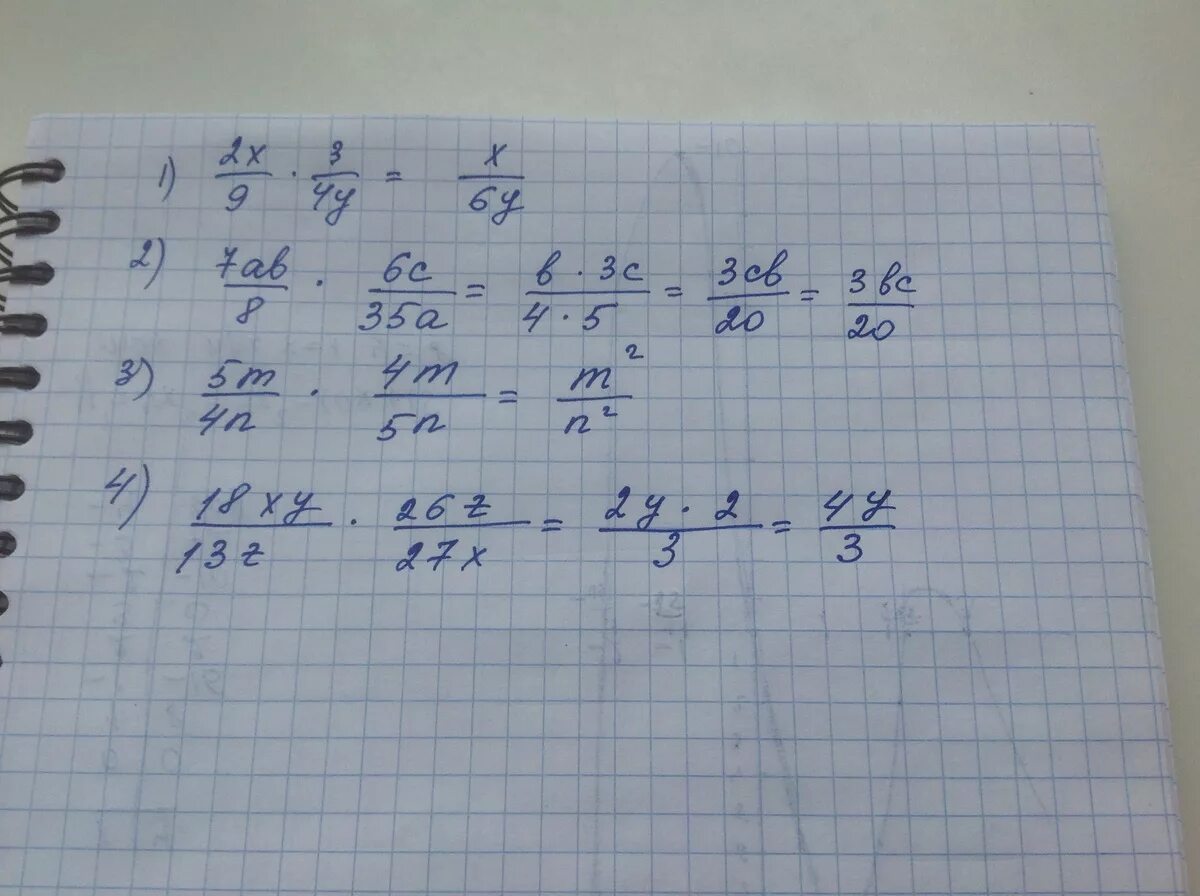 1) 2x/9 · 3/4y = x/6y
2) 7ab/8 · 6c/35a = b · 3c/4 · 5 = 3cb/20 = 3bc/20
3) 5m/4n · 4m/5n = m²/n²
4) 18xy/13z · 26z/27x = 2y · 2/3 = 4y/3